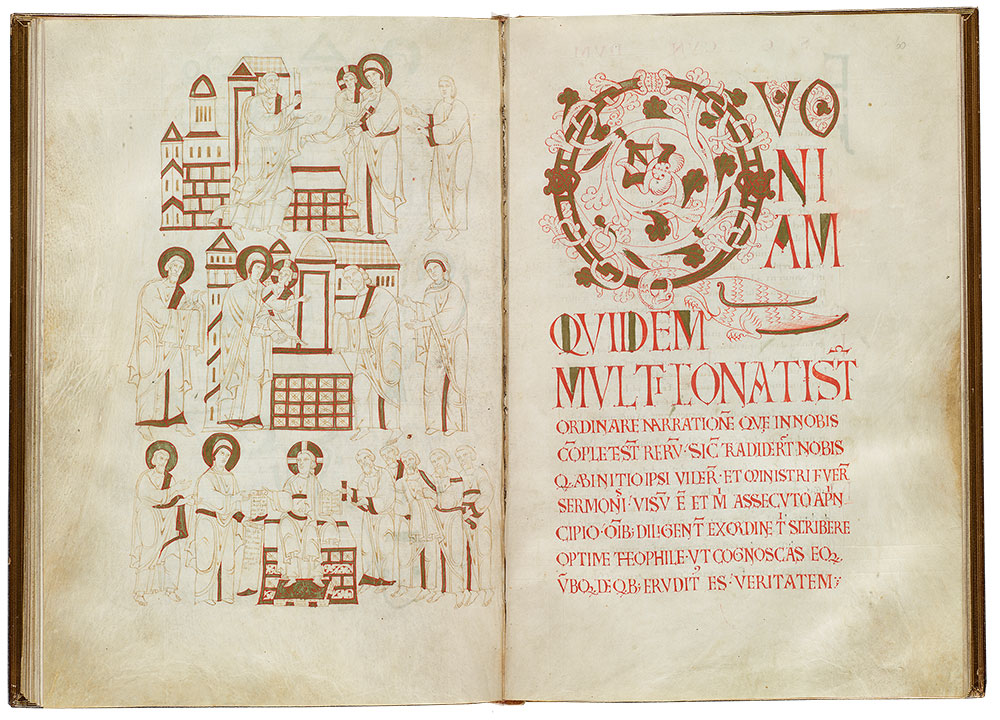 QVO
NI
AM
QVIDEM
MVLTI CONATI ST̄
ORDINARE NARRATIONĒ QVĘ IN NOBIS
CŌPLETĘ ST̄ RERV̄· SIC̄ TRADIDER̄T NOBIS
Q̨ AB INITIO IPSI VIDER̄· ET MINISTRI FVER̄
SERMONI· VISV̄ Ē ET M̍ ASSECVTO A P̍N
CIPIO OĪB; DILIGENT̄ EX ORDINE T̍ SCRIBERE
OPTIME THEOPHILE· VT COGNOSCAS EO
V̄BO DE QB; ERVDIT ES· VERITATEM